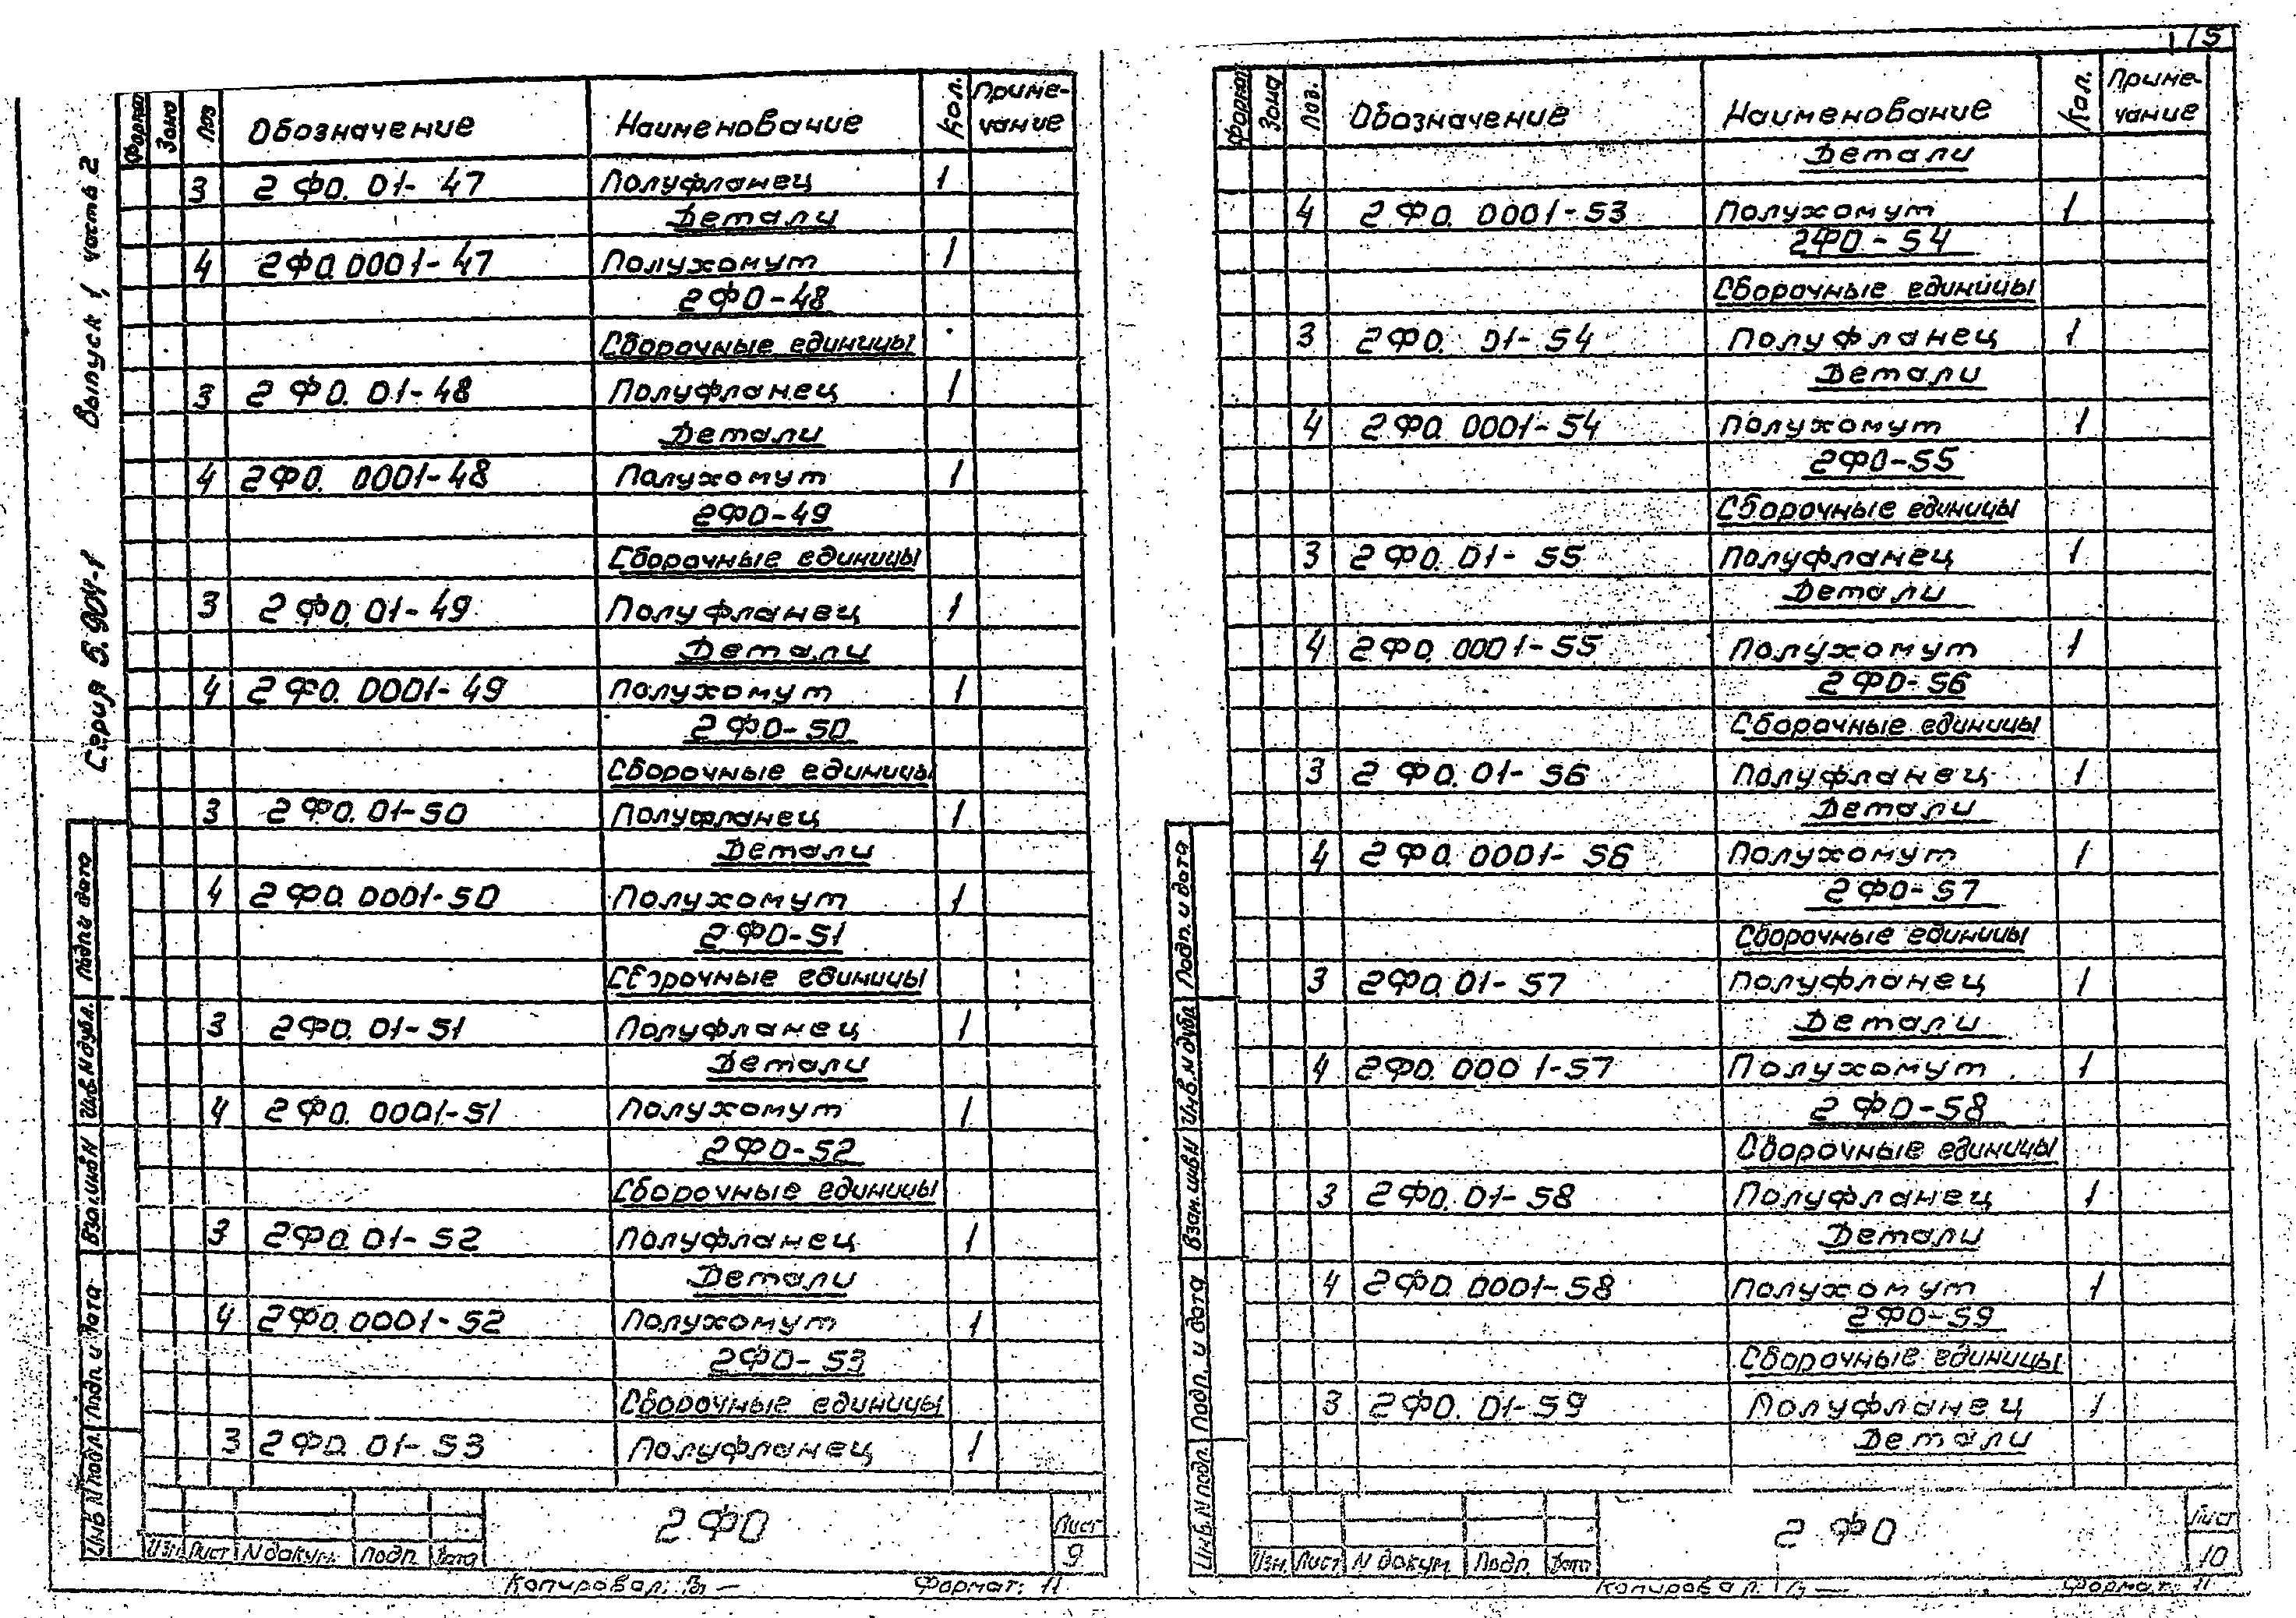 15
Серия 5.904-1 Выпуск 1, часть 2
Формат Зона Поз Обозначение Наименование Кол. Приме-
чание
3 2ФО. 01-47 Полуфланец 1
Детали
4 2ФО.0001-47 Полухомут 1
2ФО-48
Сборочные единицы
3 2ФО. 01-48 Полуфланец 1
Детали
4 2ФО. 0001-48 Полухомут 1
2ФО-49
Сборочные единицы
3 2ФО. 01-49 Полуфланец 1
Детали
4 2ФО. 0001-49 Полухомут 1
2ФО-50
Сборочные единицы
3 2ФО. 01-50 Полуфланец 1
Детали
4 2ФО. 0001-50 Полухомут 1
2ФО-51
Сборочные единицы
3 2ФО. 01-51 Полуфланец 1
Детали
4 2ФО. 0001-51 Полухомут 1
2ФО-52
Сборочные единицы
3 2ФО. 01-52 Полуфланец 1
Детали
4 2ФО.0001-52 Полухомут 1
2ФО-53
Сборочные единицы
3 2ФО. 01-53 Полуфланец 1
Инв N подл. Подп. и дата Взам.инв N Инв.N дубл. Подп. и дата
2ФО
Лист
9
Изм Лист N докум. Подп. Дата
Копировал: Формат: 11
Формат Зона Поз. Обозначение Наименование Кол. Приме-
чание
Детали
4 2ФО. 0001-53 Полухомут 1
2ФО-54
Сборочные единицы
3 2ФО. 01-54 Полуфланец 1
Детали
4 2ФО. 0001-54 Полухомут 1
2ФО-55
Сборочные единицы
3 2ФО. 01-55 Полуфланец 1
Детали
4 2ФО. 0001-55 Полухомут 1
2ФО-56
Сборочные единицы
3 2ФО. 01-56 Полуфланец 1
Детали
4 2ФО. 0001-56 Полухомут 1
2ФО-57
Сборочные единицы
3 2ФО. 01-57 Полуфланец 1
Детали
4 2ФО. 0001-57 Полухомут 1
2ФО-58
Сборочные единицы
3 2ФО. 01-58 Полуфланец 1
Детали
4 2ФО. 0001-58 Полухомут 1
2ФО-59
Сборочные единицы
3 2ФО. 01-59 Полуфланец 1
Детали
Инв.N подл. Подп. и дата Взам.инв N Инв.N дубл Подп. и дата
2ФО
Лист
10
Изм. Лист N докум. Подп. Дата
Копировал: Формат: 11